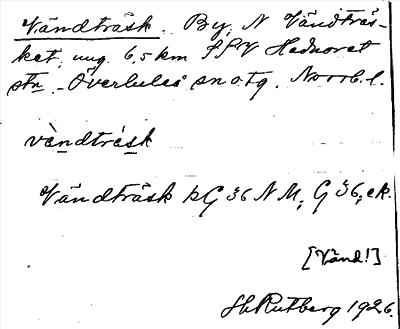 Vändträsk. By, N Vändträs-
ket, ung. 6,5 km SSV Hednoret
stn. Överluleå sn o. tg. Norrb. l.
vàndträ́sk
Vändträsk kG 36 NM; G 36; ek.
[Vänd!]
Sk Rutberg 1926.